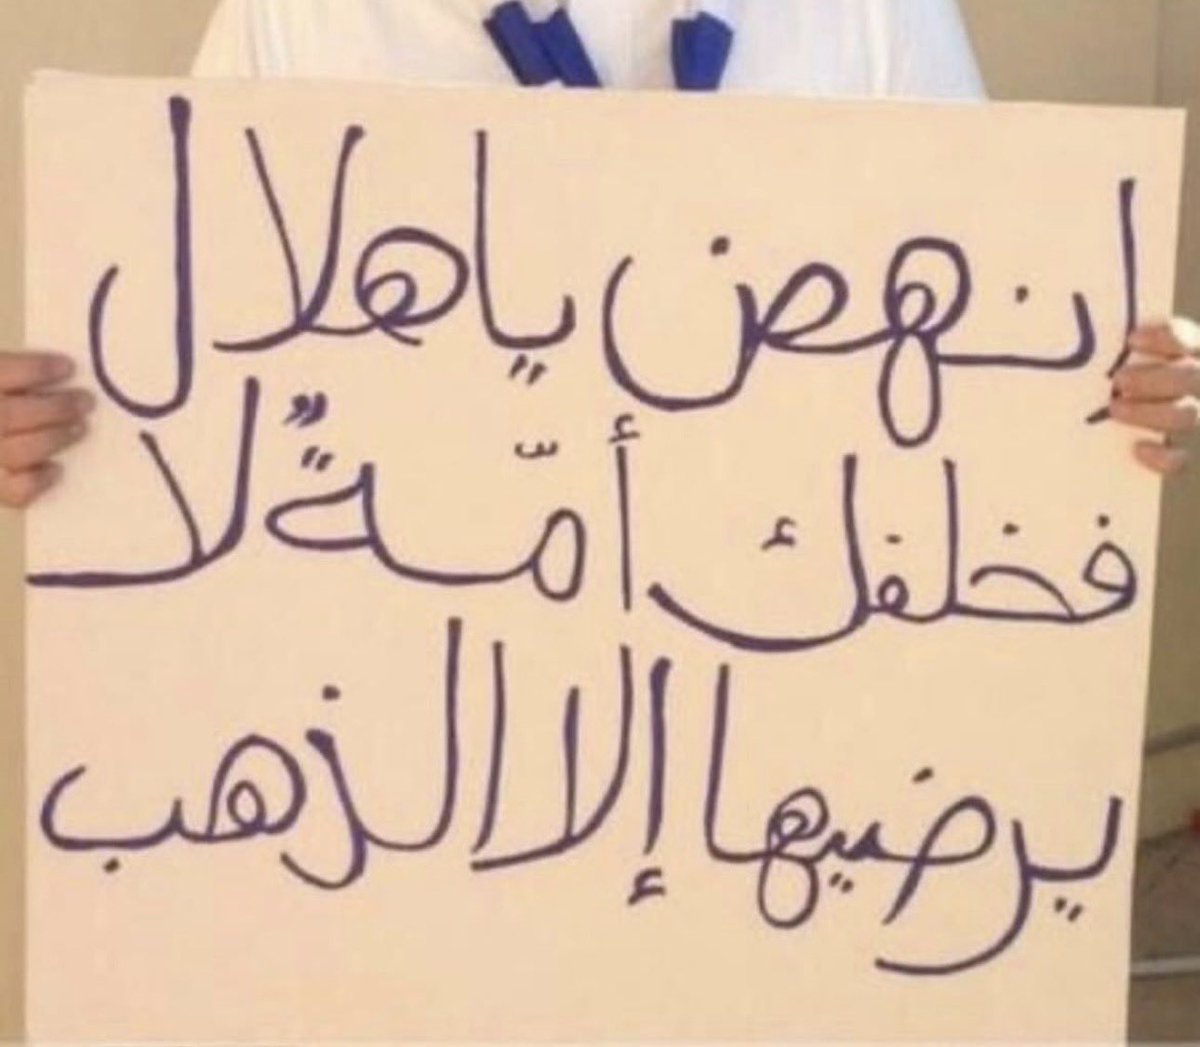 إنهض ياهلال
فخلفك أمّةٌ لا
يرضيها إلا الذهب